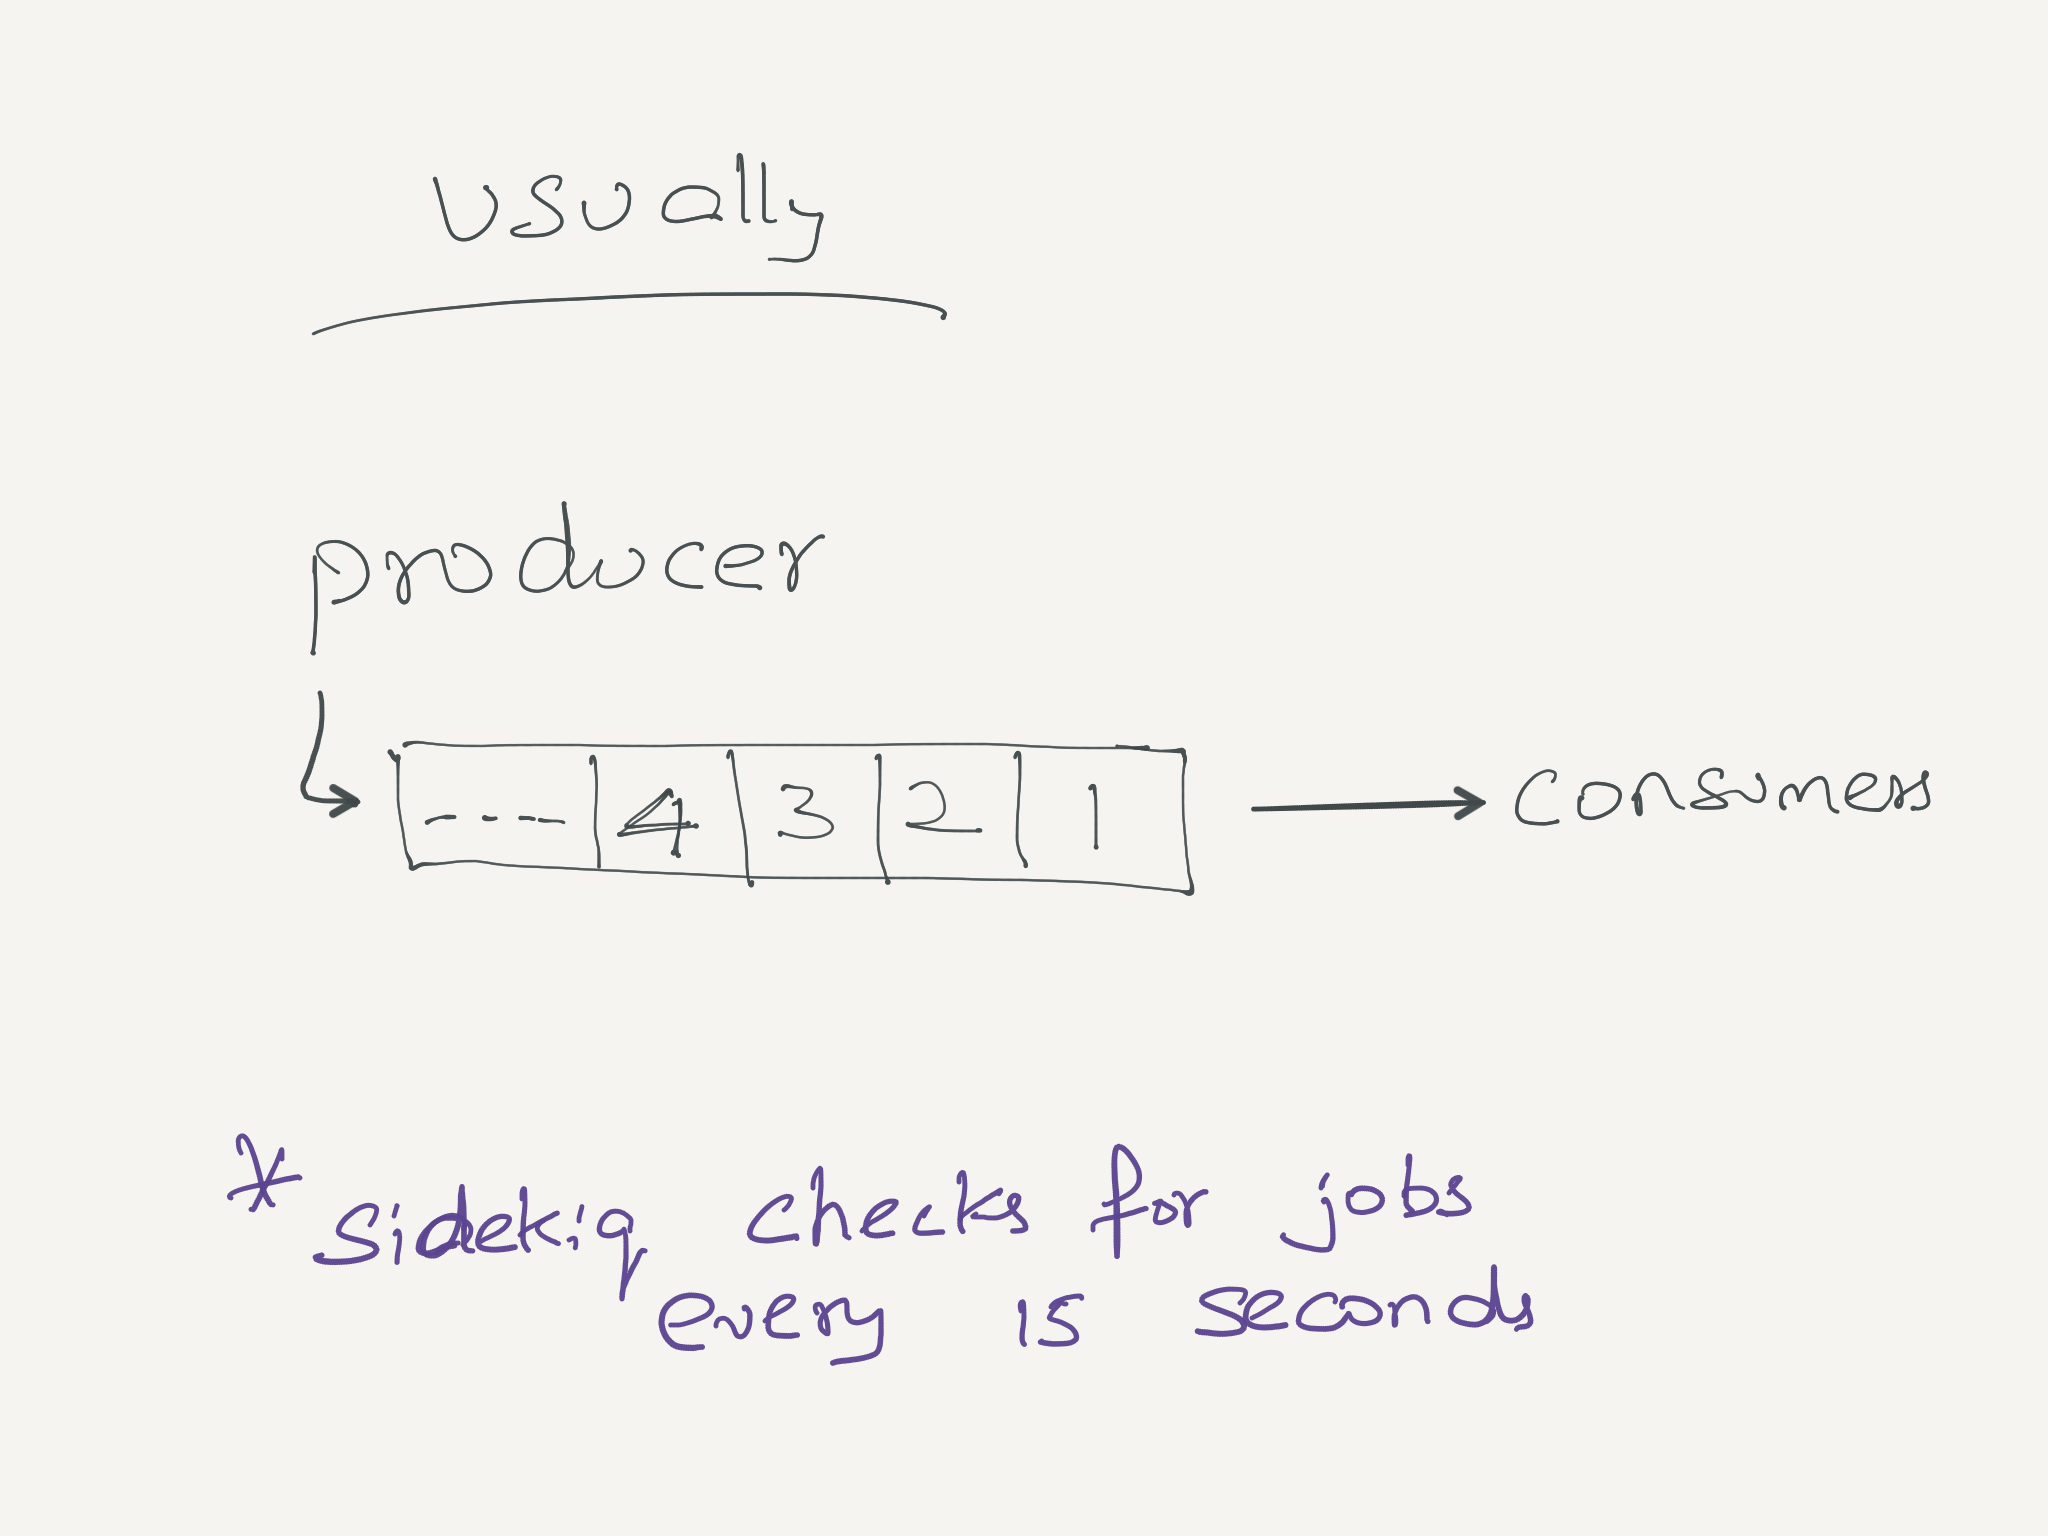 usually
producer
---- 4 3 2 1 consumers
* sidekiq checks for jobs
every 15 seconds